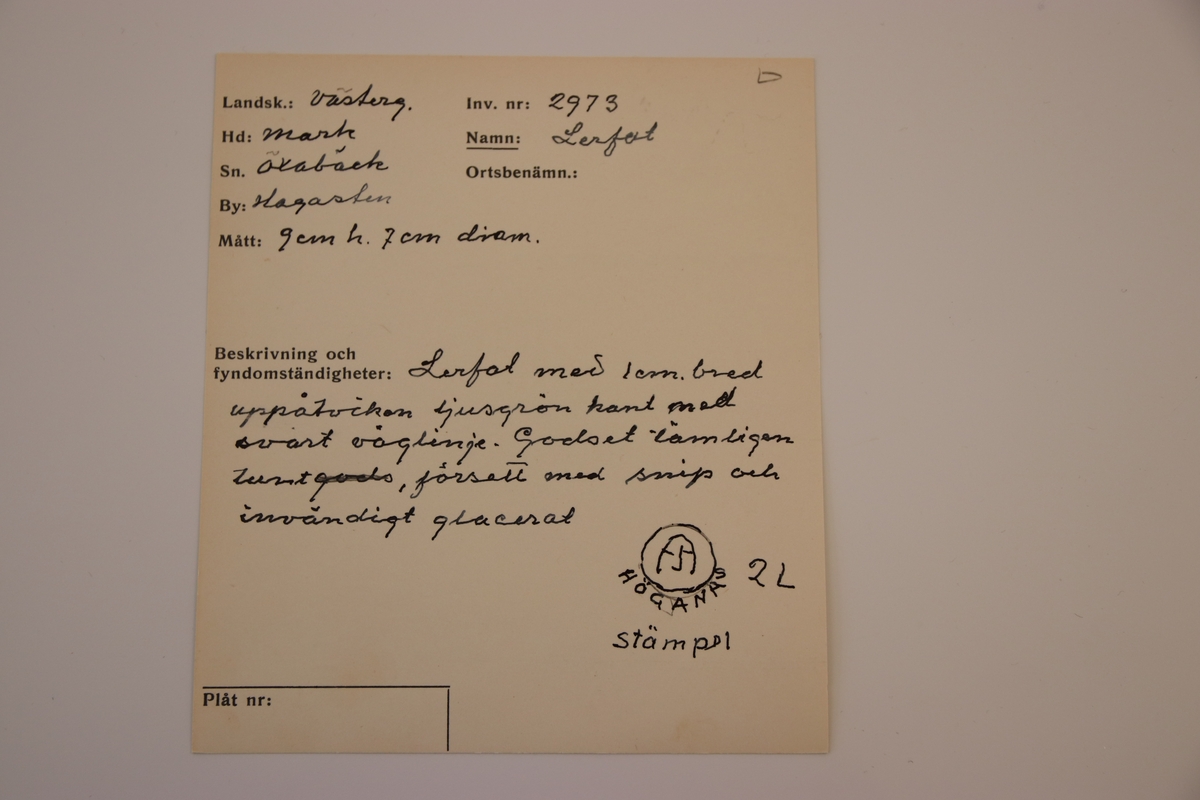 D
Landsk.: Västerg.
Inv. nr: 2973
Hd: Mark
Namn: Lerfat
Sn. Öxabäck
Ortsbenämn.:
By: Hagasten
Mått: 9cm h. 7cm diam.
Beskrivning och
fyndomständigheter: Lerfat med 1cm. bred
uppåtviken ljusgrön kant med
svart våglinje. Godset tämligen
tunt gods, försett med snip och
invändigt glacerat
HÖGANÄS
2L
stämpel
Plåt nr: